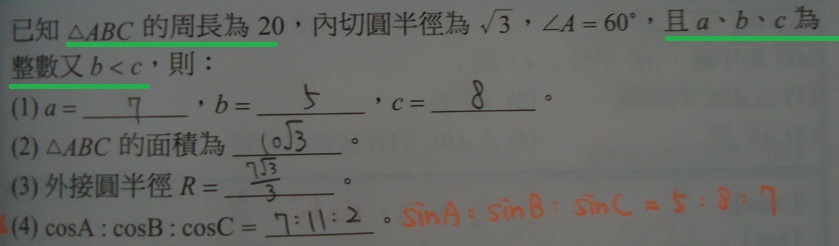 已知 △ABC 的周長為 20，內切圓半徑為 √3，∠A = 60°，且 a、b、c 為
整數又 b < c，則：
(1) a = 7，b = 5，c = 8。
(2) △ABC 的面積為 10√3。
(3) 外接圓半徑 R = 7√3/3。
(4) cosA : cosB : cosC = 7:11:2。sinA : sinB : sinC = 5 : 8 : 7